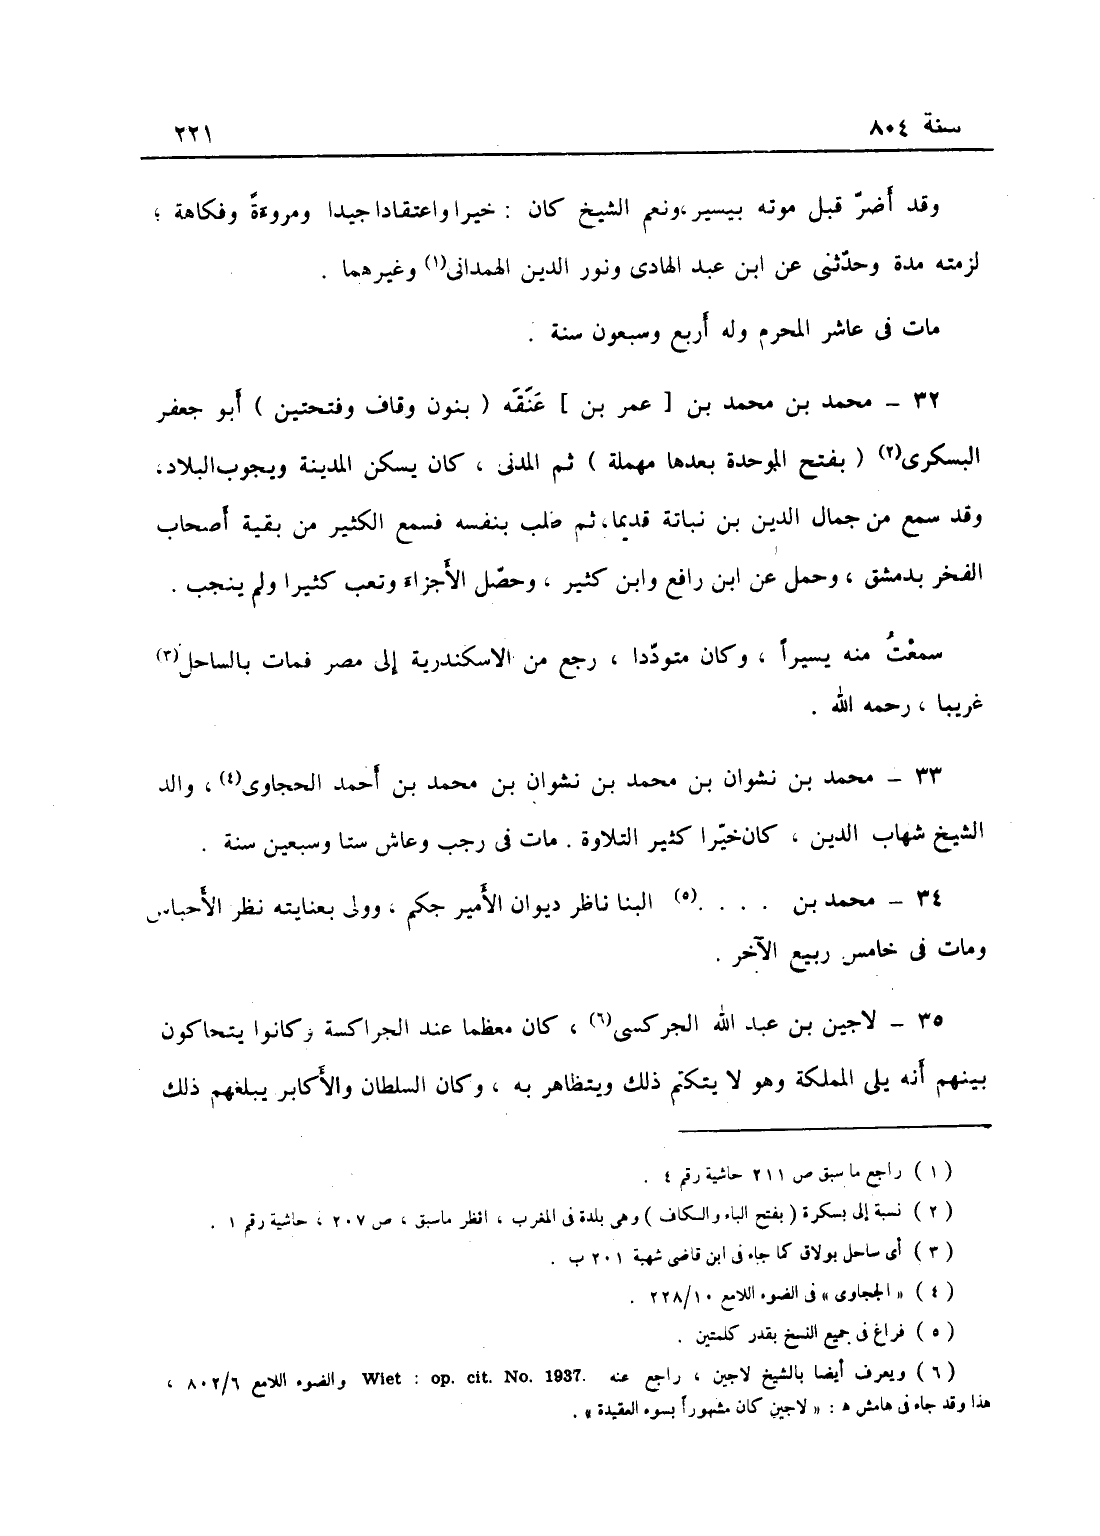 سنة ٨٠٤
٢٢١
وقد أَضرّ قبل موته بيسير، ونعم الشيخ كان : خيرا واعتقادا جيدا ومروءةً وفكاهة ؛
لزمته مدة وحدّثنى عن ابن عبد الهادى ونور الدين الهمدانى(١) وغيرهما .
مات فى عاشر المحرم وله أَربع وسبعون سنة .
٣٢ – محمد بن محمد بن [ عمر بن ] عَنَقَه ( بنون وقاف وفتحتين ) أَبو جعفر
البسكرى(٢) ( بفتح الموحدة بعدها مهملة ) ثم المدنى ، كان يسكن المدينة ويجوب البلاد،
وقد سمع من جمال الدين بن نباتة قديما، ثم طلب بنفسه فسمع الكثير من بقية أَصحاب
الفخر بدمشق ، وحمل عن ابن رافع وابن كثير ، وحصّل الأَجزاء وتعب كثيرا ولم ينجب .
سمعْتُ منه يسيراً ، وكان متودّدا ، رجع من الاسكندرية إلى مصر فمات بالساحل(٣)
غريبا ، رحمه الله .
٣٣ – محمد بن نشوان بن محمد بن نشوان بن محمد بن أَحمد الحجاوى(٤) ، والد
الشيخ شهاب الدين ، كان خيّرا كثير التلاوة . مات فى رجب وعاش ستا وسبعين سنة .
٣٤ – محمد بن . . . .(٥) البنا ناظر ديوان الأَمير جكم ، وولى بعنايته نظر الأَحباس
ومات فى خامس ربيع الآخر .
٣٥ – لاجين بن عبد الله الجركسى(٦) ، كان معظما عند الجراكسة وكانوا يتحاكون
بينهم أَنه يلى المملكة وهو لا يتكتّم ذلك ويتظاهر به ، وكان السلطان والأَكابر يبلغهم ذلك
( ١ ) راجع ما سبق ص ٢١١ حاشية رقم ٤ .
( ٢ ) نسبة إلى بسكرة ( بفتح الباء والكاف ) وهى بلدة فى المغرب ، انظر ماسبق ، ص ٢٠٧ ، حاشية رقم ١ .
( ٣ ) أى ساحل بولاق كما جاء فى ابن قاضى شهبة ٢٠١ ب .
( ٤ ) « الججاوى » فى الضوء اللامع ٢٢٨/١٠ .
( ٥ ) فراغ فى جميع النسخ بقدر كلمتين .
( ٦ ) ويعرف أيضا بالشيخ لاجين ، راجع عنه Wiet : op. cit. No. 1937. والضوء اللامع ٨٠٢/٦ ،
هذا وقد جاء فى هامش ه : « لاجين كان مشهوراً بسوء العقيدة » .